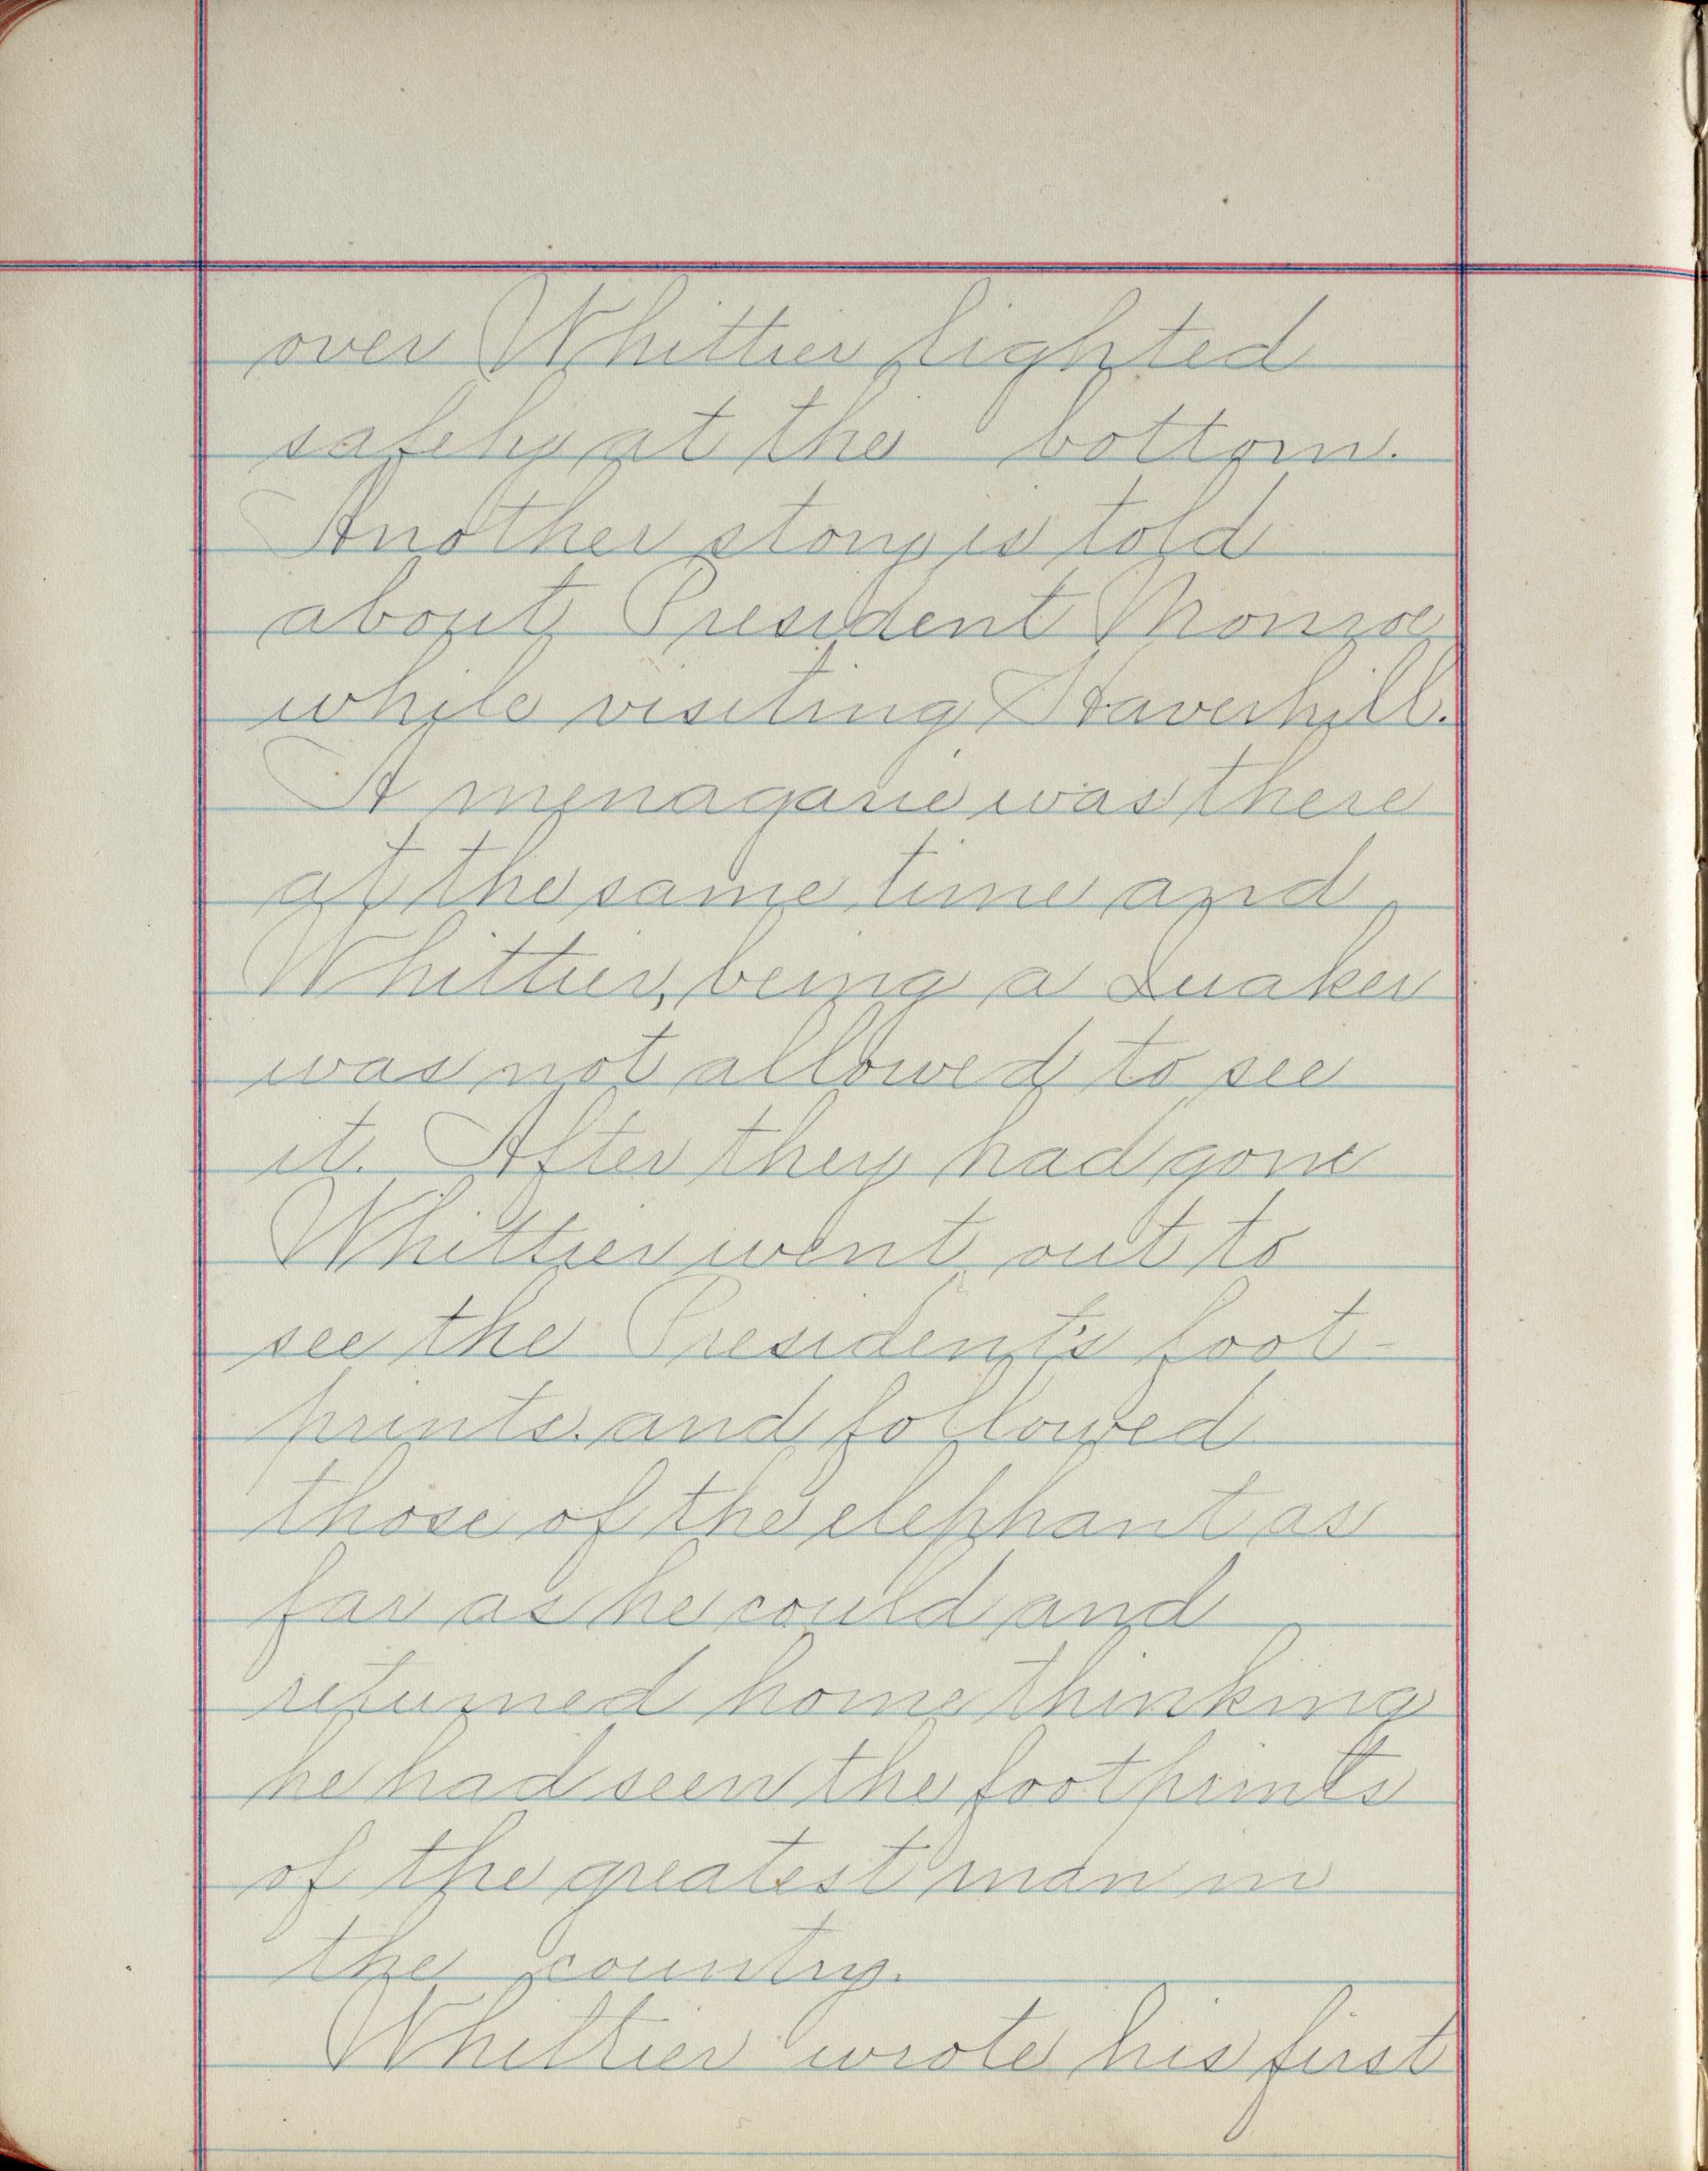 over Whittier lighted
safely at the bottom.
Another story is told
about President Monroe
while visiting Haverhill.
A menagarie was there
at the same time and
Whittier, being a Quaker
was not allowed to see
it. After they had gone
Whittier went out to
see the President's foot-
prints. and followed
those of the elephant as
far as he could and
returned home thinking
he had seen the footprints
of the greatest man in
the country.
Whittier wrote his first